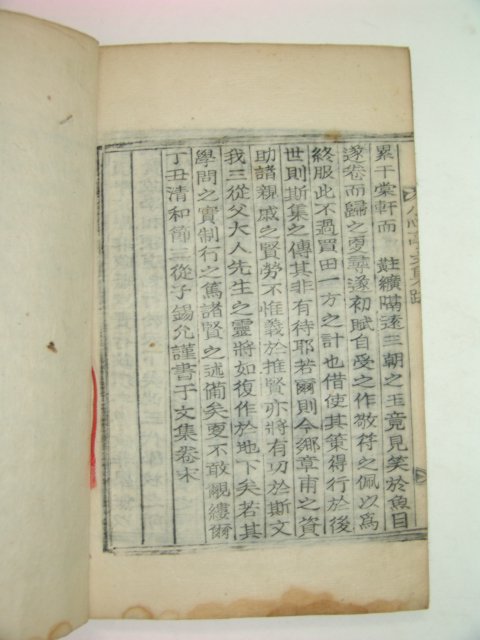 累干棠軒而 黈纊隔逺三朝之玉竟見笑於魚目
遂卷而歸之更尋遂初賦自受之作敬符之佩以爲
終服此不過買田一方之計也借使其策得行於後
世則斯集之傳其非有待耶若爾則今鄉章甫之資
助諸親戚之賢勞不惟義於推賢亦將有功於斯文
我三從父大人先生之靈將如復作於地下矣若其
學問之實制行之篤諸賢之述備矣更不敢覼縷爾
丁丑清和節三從子錫允謹書于文集卷末